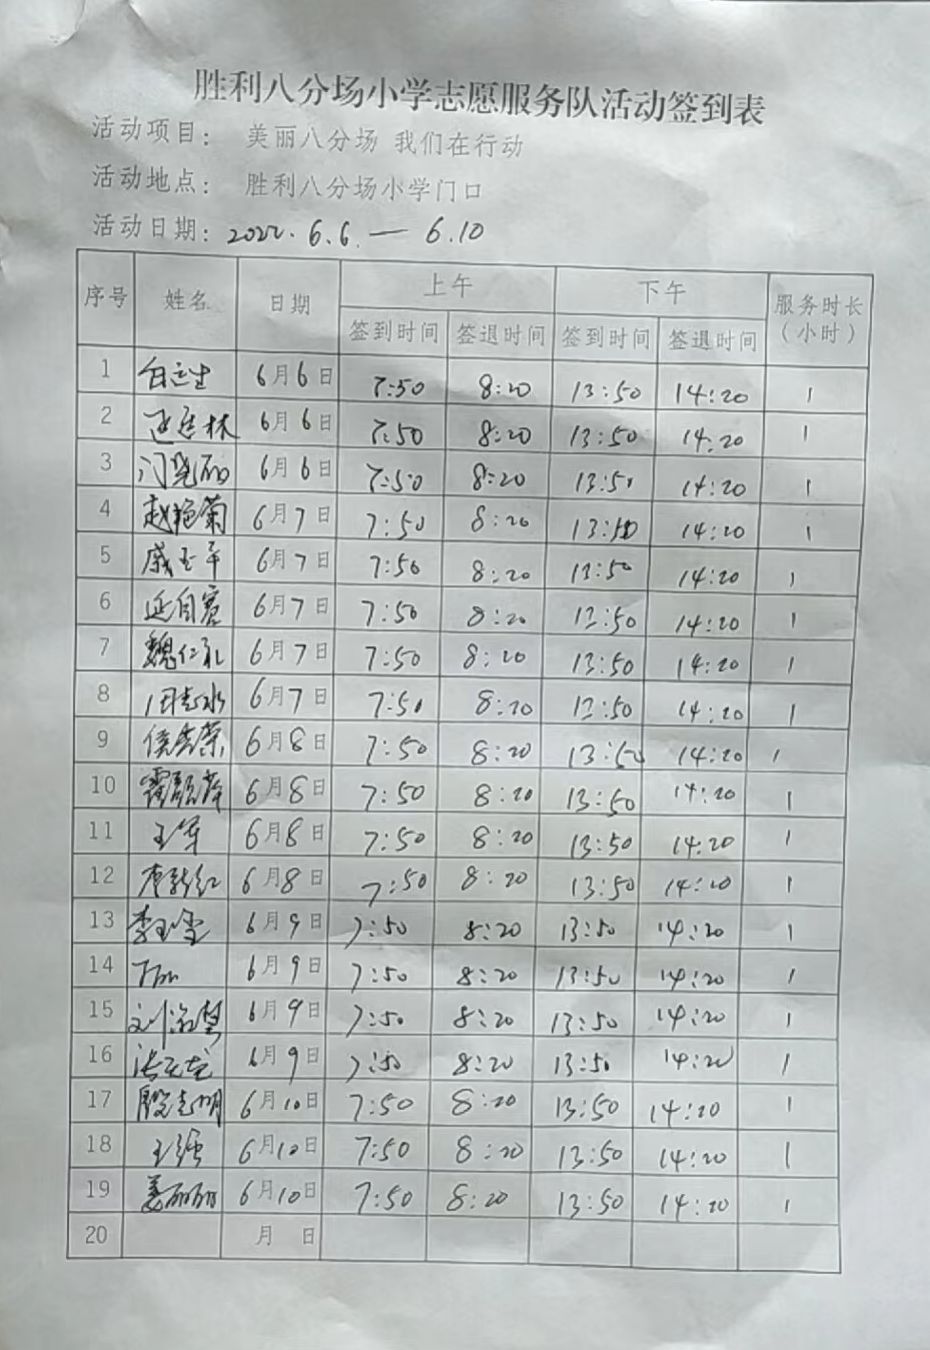 胜利八分场小学志愿服务队活动签到表
活动项目： 美丽八分场 我们在行动
活动地点： 胜利八分场小学门口
活动日期：2022.6.6.—6.10
序号 姓名 日期 上午 下午 服务时长（小时）
签到时间 签退时间 签到时间 签退时间
1 6月6日 7:50 8:20 13:50 14:20 1
2 6月6日 7:50 8:20 13:50 14:20 1
3 闫晓丽 6月6日 7:50 8:20 13:50 14:20 1
4 赵艳菊 6月7日 7:50 8:20 13:50 14:20 1
5 戚玉平 6月7日 7:50 8:20 13:50 14:20 1
6 6月7日 7:50 8:20 13:50 14:20 1
7 魏仁礼 6月7日 7:50 8:20 13:50 14:20 1
8 田志水 6月7日 7:50 8:20 13:50 14:20 1
9 侯秀荣 6月8日 7:50 8:20 13:50 14:20 1
10 6月8日 7:50 8:20 13:50 14:20 1
11 王军 6月8日 7:50 8:20 13:50 14:20 1
12 6月8日 7:50 8:20 13:50 14:20 1
13 李玉莹 6月9日 7:50 8:20 13:50 14:20 1
14 6月9日 7:50 8:20 13:50 14:20 1
15 6月9日 7:50 8:20 13:50 14:20 1
16 6月9日 7:50 8:20 13:50 14:20 1
17 殷志明 6月10日 7:50 8:20 13:50 14:20 1
18 王强 6月10日 7:50 8:20 13:50 14:20 1
19 姜丽丽 6月10日 7:50 8:20 13:50 14:20 1
20 月 日